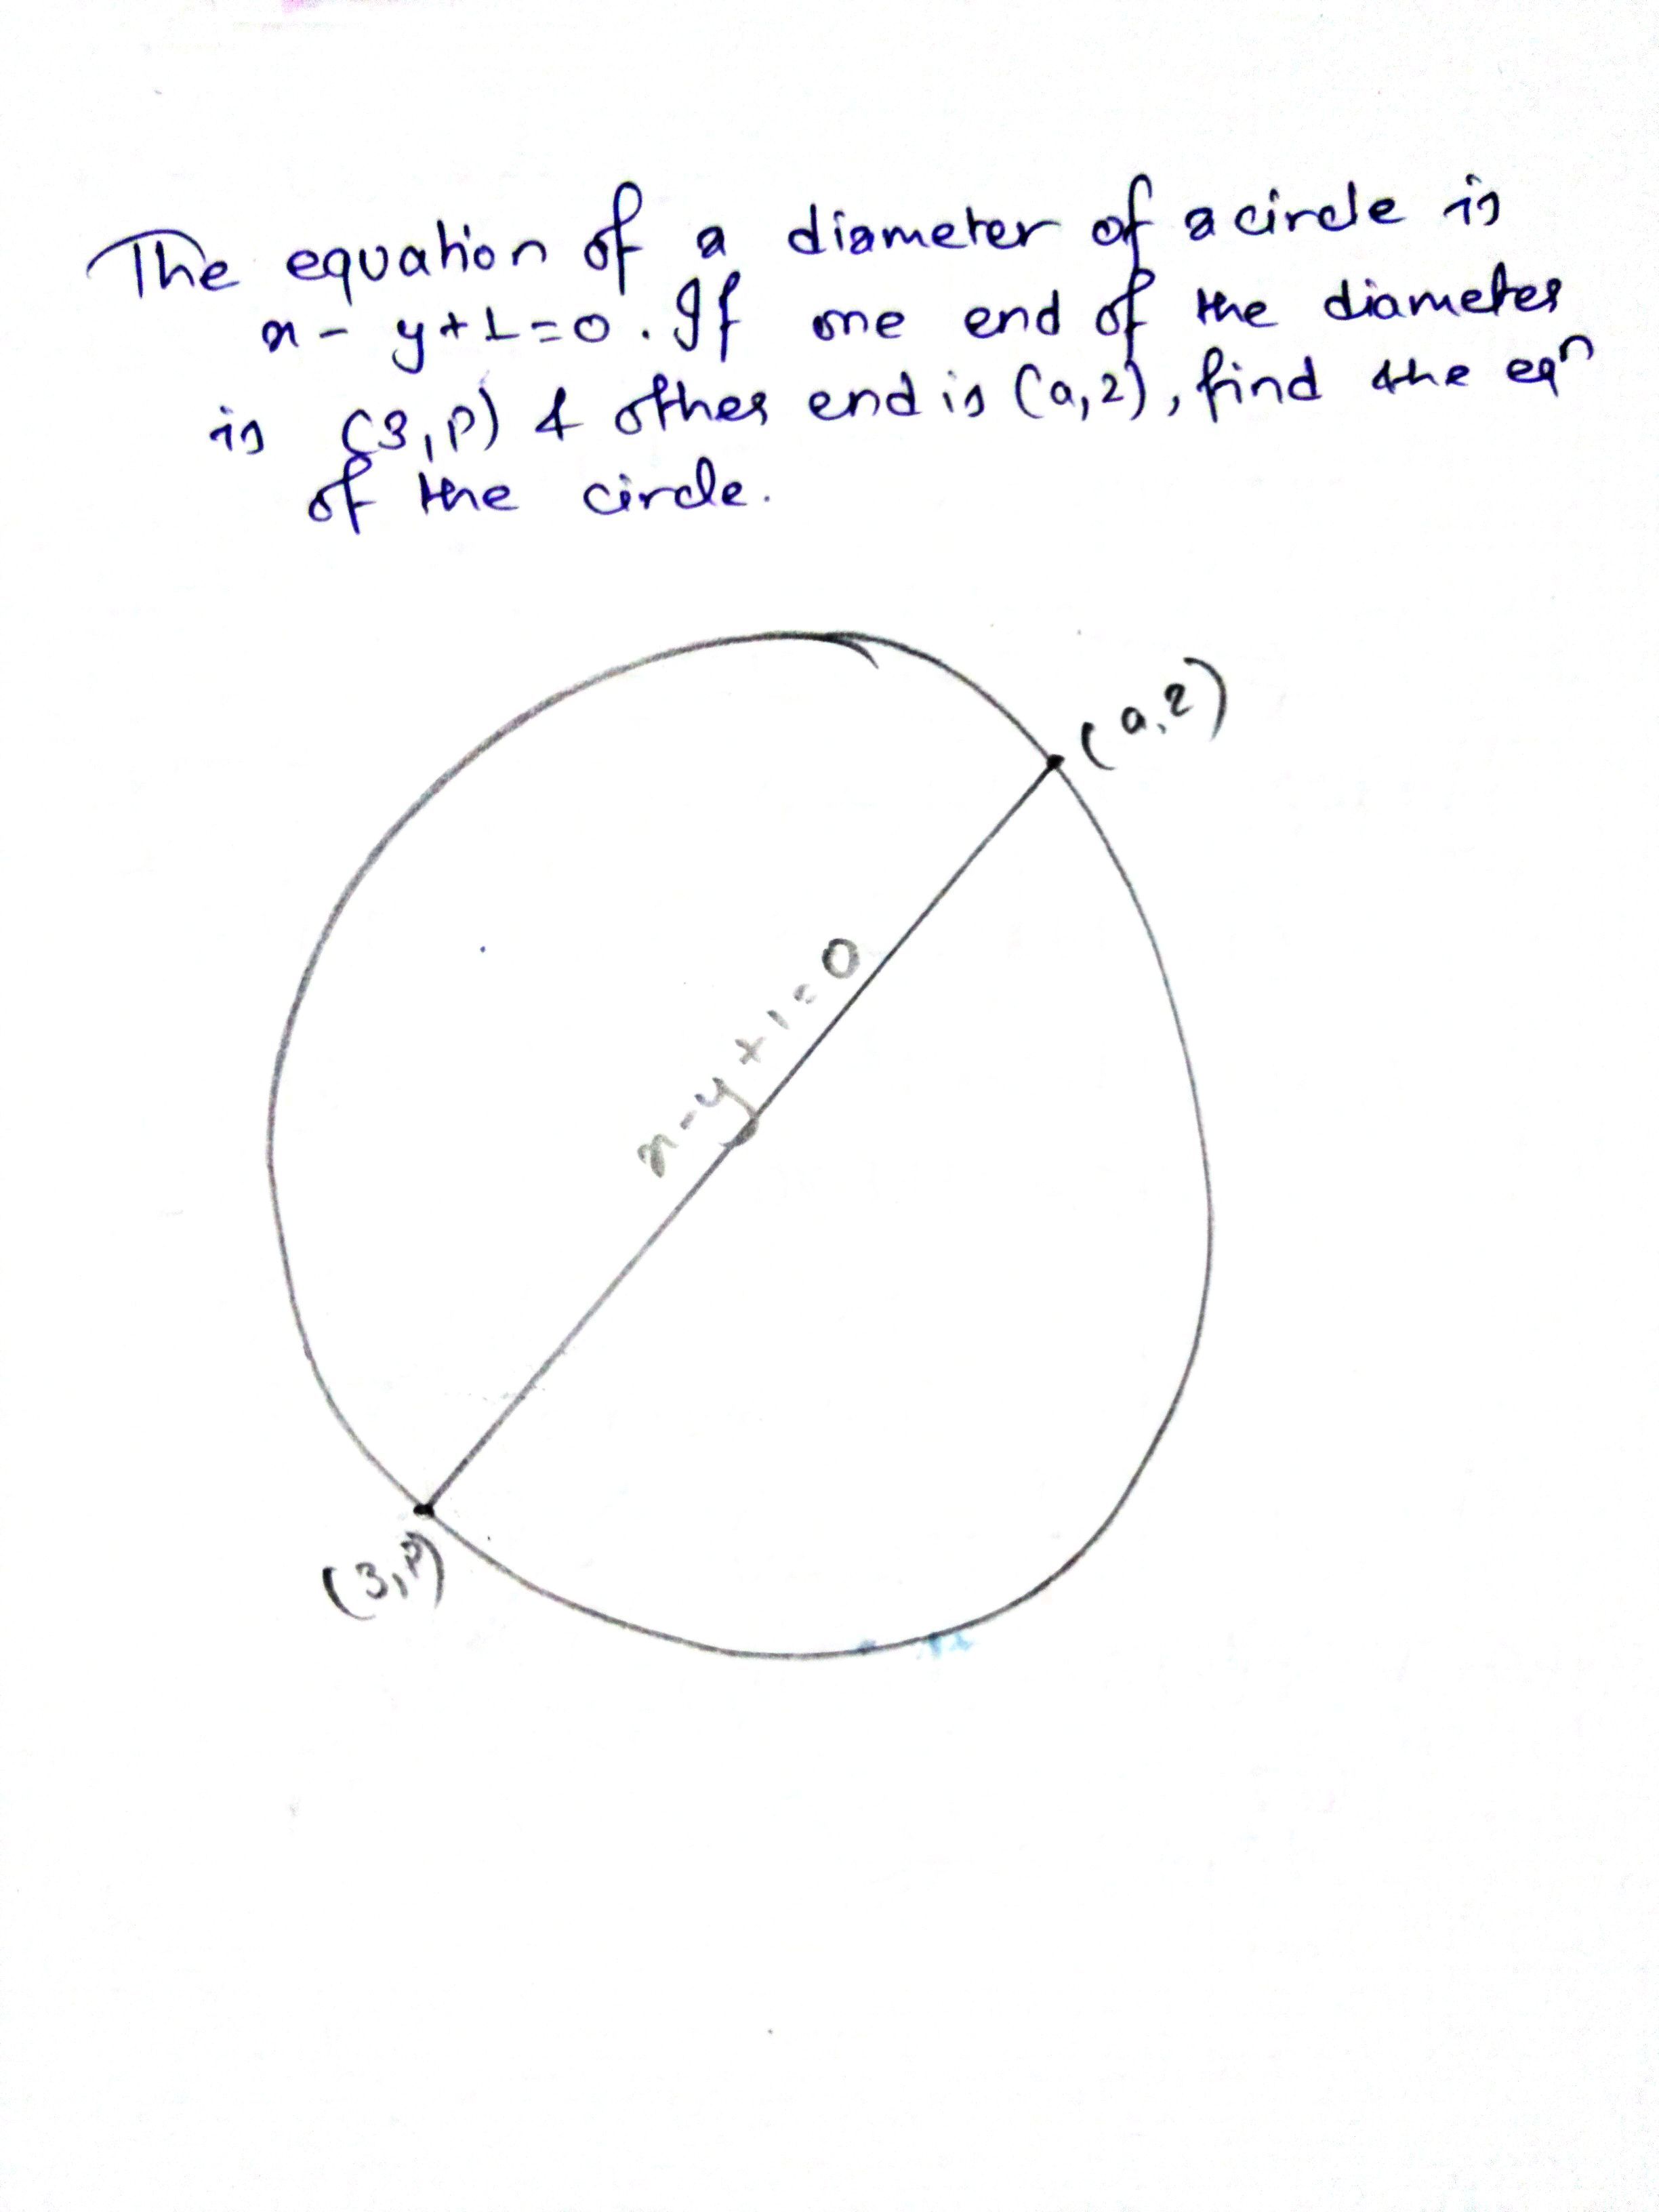 The equation of a diameter of a circle is
x - y + 1 = 0. If one end of the diameter
is (3, p) & other end is (a, 2), find the eqⁿ
of the circle.
(a, 2)
x - y + 1 = 0
(3, p)